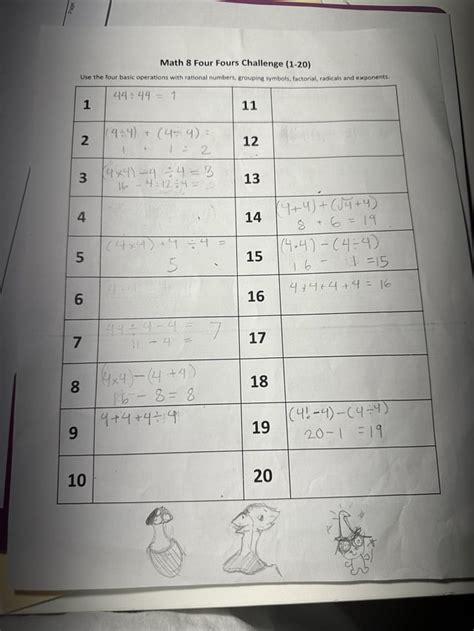 Math 8 Four Fours Challenge (1-20)
Use the four basic operations with rational numbers, grouping symbols, factorial, radicals and exponents.
1
44÷44 = 1
11
2
(4÷4) + (4÷4) =
1 + 1 = 2
12
3
(4x4) - 4 ÷ 4 = 3
16 - 4 = 12 ÷ 4 =
13
4
14
(4+4)+(√4+4)
8 + 6 = 19
5
(4x4)+4 ÷ 4 =
5
15
(4·4) - (4÷4)
16 - 1 = 15
6
16
4+4+4+4 = 16
7
44 ÷ 4 - 4 = 7
11 - 4 =
17
8
(4x4)-(4+4)
16 - 8 = 8
18
9
4+4+4÷4
19
(4!-4)-(4÷4)
20-1 = 19
10
20